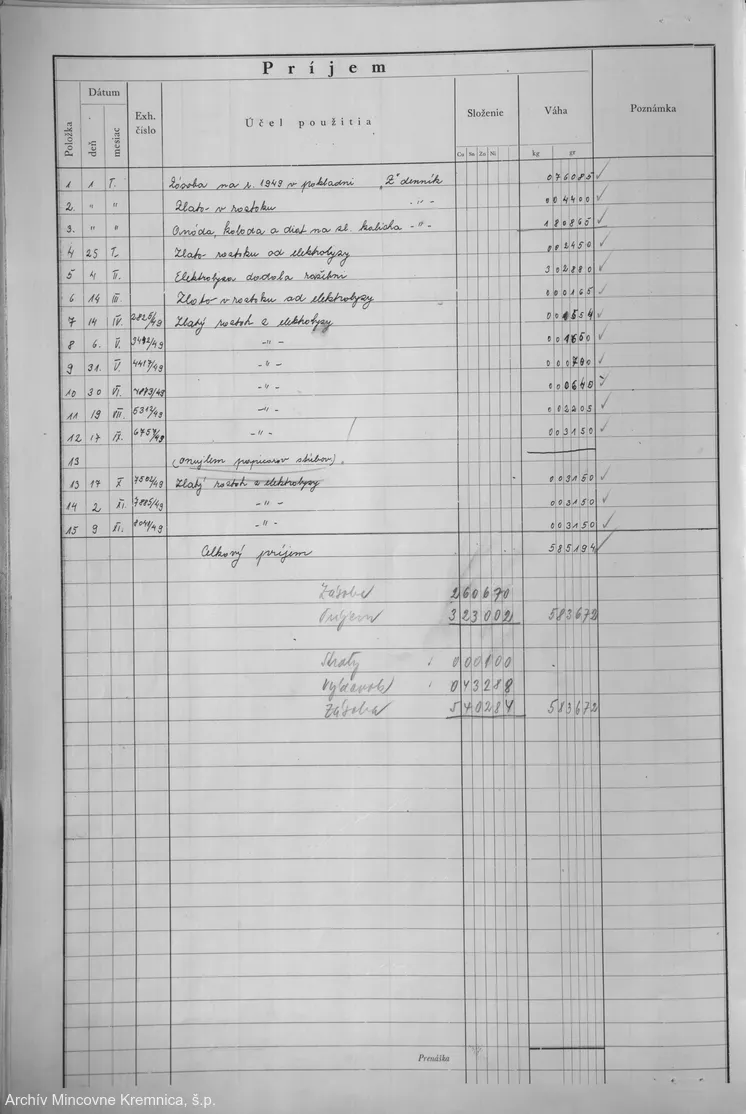 Príjem
Položka Dátum Exh. číslo Účel použitia Složenie Váha Poznámka
deň mesiac Cu Sn Zn Ni kg gr
1 1 I. Zásoba na r. 1949 v pokladni "Z" denník 076085 ✓
2. " " Zlato v roztoku -"- 004400 ✓
3. " " Anóda, katoda a dist na sl. kalicha -"- 180865 ✓
4 25 I. Zlato roztoku od elektrolyzy 002450 ✓
5 4 II. Elektrolyza dodala 302880 ✓
6 14 III. Zlato v roztoku od elektrolyzy 000165 ✓
7 14 IV. 2825/49 Zlatý roztok z elektrolyzy 001554 ✓
8 6. V. 3492/49 -"- 001650 ✓
9 31. V. 4417/49 -"- 000790 ✓
10 30 VI. 4873/49 -"- 000640 ✓
11 19 VII. 5312/49 -"- 002205 ✓
12 17 IX. 6757/49 -"- 003150 ✓
13
13 17 X 7502/49 Zlatý roztok z elektrolyzy 003150 ✓
14 2 XI. 7885/49 -"- 003150 ✓
15 9 XI. 8041/49 -"- 003150 ✓
Celkový príjem 585194 ✓
Zásoba 260670
Príjem 323002 583672
Straty 000100
043288
Zásoba 540284 583672
Prenáška
Archív Mincovne Kremnica, š.p.